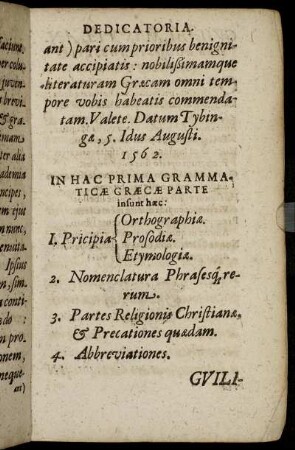 DEDICATORIA.
ant) pari cum prioribus benigni
tate accipiatis: nobilißimamque
literaturam Græcam omni tem
pore vobis habeatis commenda-
tam. Valete. Datum Tybin-
gæ, 5. Idus Augusti.
1562.
IN HAC PRIMA GRAMMA-
TICÆ GRÆCÆ PARTE
insunt hæc:
Orthographiæ.
1. Pricipia Prosodiæ.
Etymologiæ.
2. Nomenclatura Phrasesq́; re-
rum.
3. Partes Religionis Christianæ,
& Precationes quædam.
4. Abbreviationes.
GVILI-